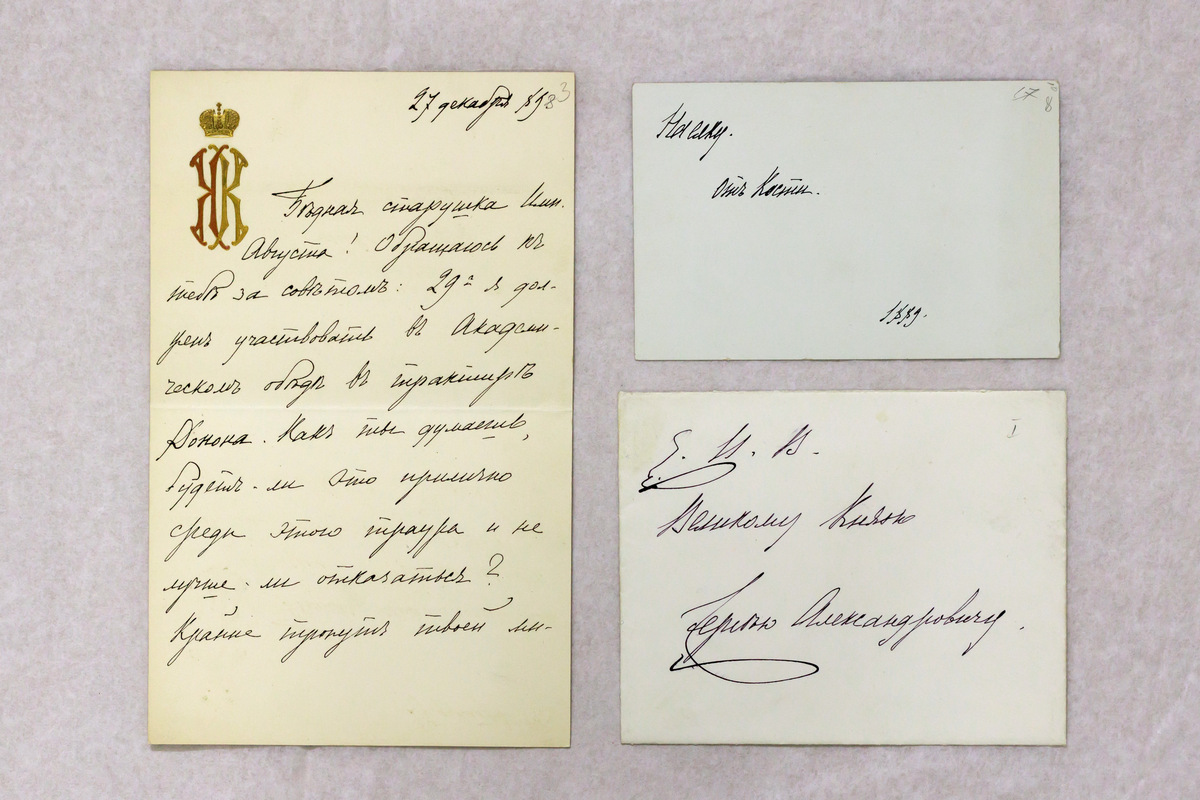 27 декабря
Бѣдная старушка Имп.
Августа! Обращаюсь къ
тебѣ за совѣтомъ: 29-го я дол-
женъ участвовать въ Академи-
ческомъ обѣдѣ въ трактирѣ
Донона. Какъ ты думаешь,
будетъ-ли это прилично
среди этого траура и не
лучше-ли отказаться?
Крайне тронутъ твоей ми-
На елку.
Отъ Кости.
1889.
I
Е. И. В.
Великому Князю
Сергѣю Александровичу.